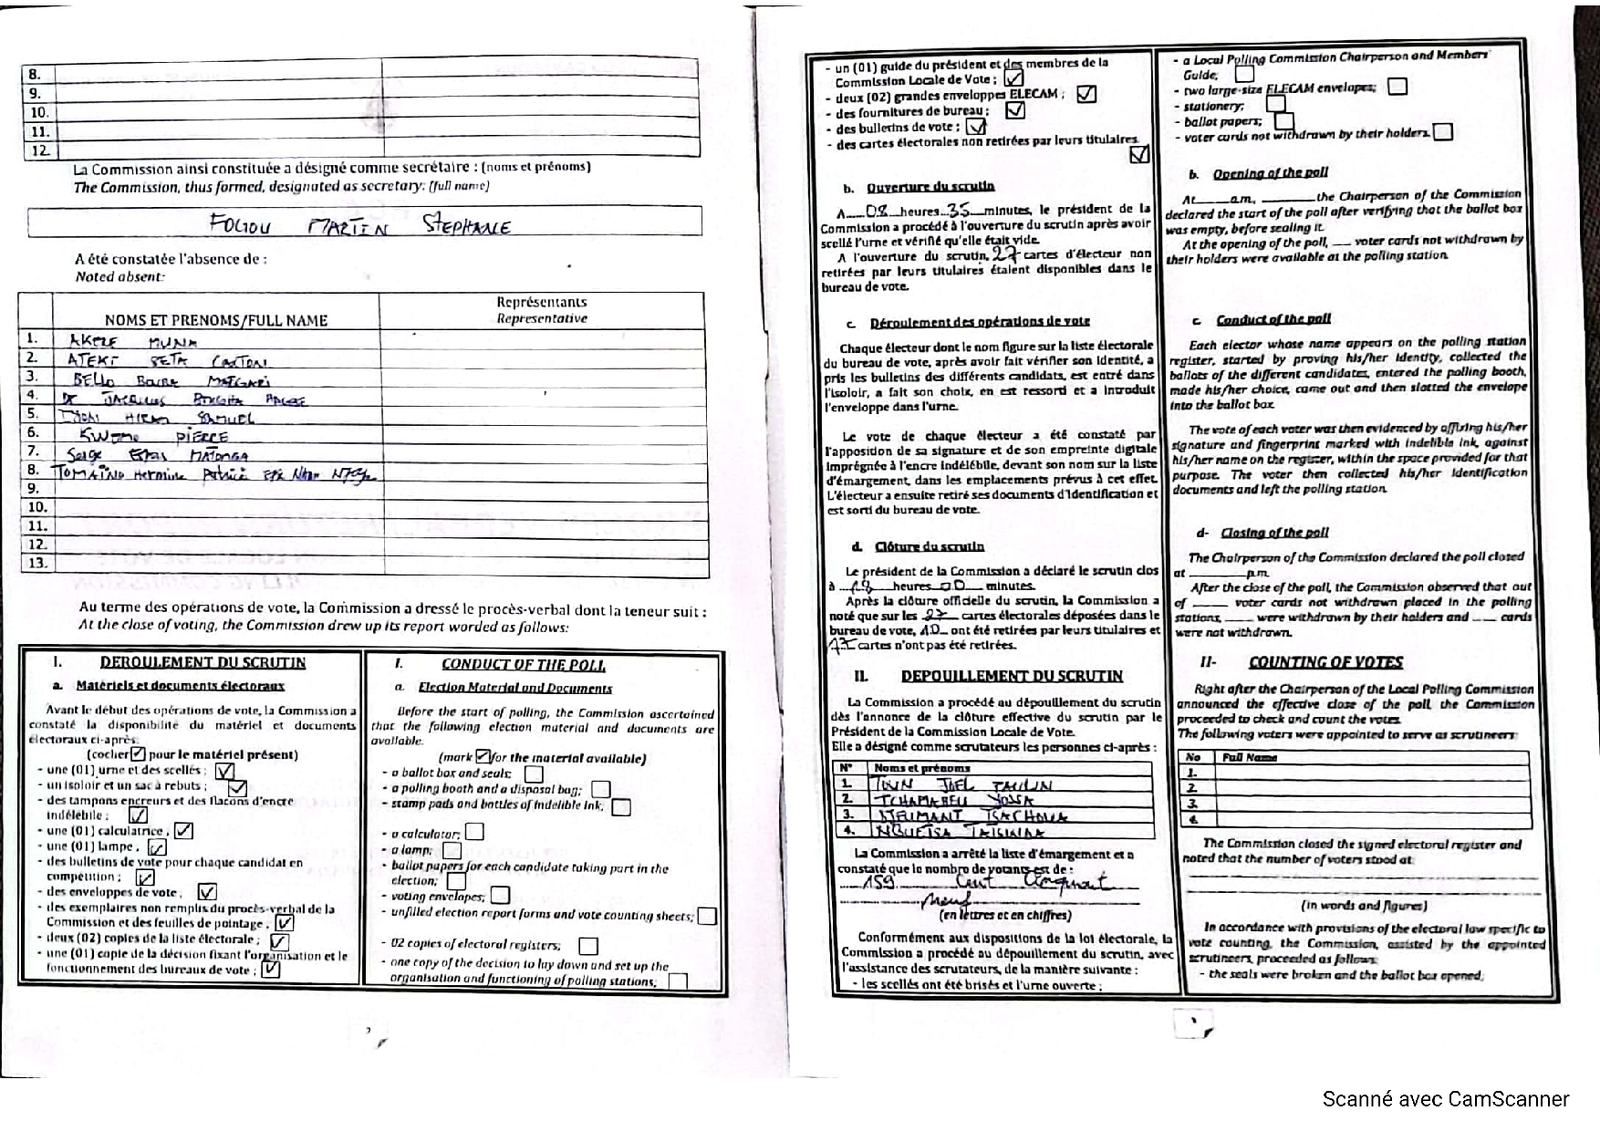 8.
9.
10.
11.
12.
La Commission ainsi constituée a désigné comme secrétaire : (noms et prénoms)
The Commission, thus formed, designated as secretary: (full name)
FOGOU MARTIN STEPHANE
A été constatée l'absence de :
Noted absent:
NOMS ET PRENOMS/FULL NAME
Représentants
Representative
1. AKERE MUNA
2. ATEKI SETA CAXTON
3. BELLO BOUBA MAIGARI
4. Dr JACQUES BOUGHA HAGBE
5. HIRAM SAMUEL
6. KWEMO PIERRE
7. Serge ESPOIR MATOMBA
8. TOMAÏNO Hermine Patricia EPSE
9.
10.
11.
12.
13.
Au terme des opérations de vote, la Commission a dressé le procès-verbal dont la teneur suit :
At the close of voting, the Commission drew up its report worded as follows:
I. DEROULEMENT DU SCRUTIN
a. Matériels et documents électoraux
Avant le début des opérations de vote, la Commission a
constaté la disponibilité du matériel et documents
électoraux ci-après:
(cocher ☑ pour le matériel présent)
- une (01) urne et des scellés ; ☑
- un isoloir et un sac à rebuts ; ☑
- des tampons encreurs et des flacons d'encre
indélébile ; ☑
- une (01) calculatrice , ☑
- une (01) lampe , ☑
- des bulletins de vote pour chaque candidat en
compétition ; ☑
- des enveloppes de vote , ☑
- des exemplaires non remplis du procès-verbal de la
Commission et des feuilles de pointage , ☑
- deux (02) copies de la liste électorale ; ☑
- une (01) copie de la décision fixant l'organisation et le
fonctionnement des bureaux de vote ; ☑
I. CONDUCT OF THE POLL
a. Election Material and Documents
Before the start of polling, the Commission ascertained
that the following election material and documents are
available.
(mark ☑ for the material available)
- a ballot box and seals; ☐
- a polling booth and a disposal bag; ☐
- stamp pads and bottles of indelible ink; ☐
- a calculator; ☐
- a lamp; ☐
- ballot papers for each candidate taking part in the
election; ☐
- voting envelopes; ☐
- unfilled election report forms and vote counting sheets; ☐
- 02 copies of electoral registers; ☐
- one copy of the decision to lay down and set up the
organisation and functioning of polling stations; ☐
2
- un (01) guide du président et des membres de la
Commission Locale de Vote ; ☑
- deux (02) grandes enveloppes ELECAM ; ☑
- des fournitures de bureau ; ☑
- des bulletins de vote ; ☑
- des cartes électorales non retirées par leurs titulaires.
☑
b. Ouverture du scrutin
A 08 heures 35 minutes, le président de la
Commission a procédé à l'ouverture du scrutin après avoir
scellé l'urne et vérifié qu'elle était vide.
A l'ouverture du scrutin, 27 cartes d'électeur non
retirées par leurs titulaires étaient disponibles dans le
bureau de vote.
c. Déroulement des opérations de vote
Chaque électeur dont le nom figure sur la liste électorale
du bureau de vote, après avoir fait vérifier son identité, a
pris les bulletins des différents candidats, est entré dans
l'isoloir, a fait son choix, en est ressorti et a introduit
l'enveloppe dans l'urne.
Le vote de chaque électeur a été constaté par
l'apposition de sa signature et de son empreinte digitale
imprégnée à l'encre indélébile, devant son nom sur la liste
d'émargement, dans les emplacements prévus à cet effet.
L'électeur a ensuite retiré ses documents d'identification et
est sorti du bureau de vote.
d. Clôture du scrutin
Le président de la Commission a déclaré le scrutin clos
à 18 heures 00 minutes.
Après la clôture officielle du scrutin, la Commission a
noté que sur les 27 cartes électorales déposées dans le
bureau de vote, 10 ont été retirées par leurs titulaires et
17 cartes n'ont pas été retirées.
II. DEPOUILLEMENT DU SCRUTIN
La Commission a procédé au dépouillement du scrutin
dès l'annonce de la clôture effective du scrutin par le
Président de la Commission Locale de Vote.
Elle a désigné comme scrutateurs les personnes ci-après :
N° Noms et prénoms
1. JOEL PAULIN
2. TCHAMABEU YOSSA
3. DJEUMANI TSACHOUA
4. NGUETSA
La Commission a arrêté la liste d'émargement et a
constaté que le nombre de votants est de :
159 Cent Cinquante
Neuf
(en lettres et en chiffres)
Conformément aux dispositions de la loi électorale, la
Commission a procédé au dépouillement du scrutin, avec
l'assistance des scrutateurs, de la manière suivante :
- les scellés ont été brisés et l'urne ouverte ;
- a Local Polling Commission Chairperson and Members'
Guide; ☐
- two large-size ELECAM envelopes; ☐
- stationery; ☐
- ballot papers; ☐
- voter cards not withdrawn by their holders. ☐
b. Opening of the poll
At ____ a.m, ____ the Chairperson of the Commission
declared the start of the poll after verifying that the ballot box
was empty, before sealing it.
At the opening of the poll, ___ voter cards not withdrawn by
their holders were available at the polling station.
c. Conduct of the poll
Each elector whose name appears on the polling station
register, started by proving his/her identity, collected the
ballots of the different candidates, entered the polling booth,
made his/her choice, came out and then slotted the envelope
into the ballot box.
The vote of each voter was then evidenced by affixing his/her
signature and fingerprint marked with indelible ink, against
his/her name on the register, within the space provided for that
purpose. The voter then collected his/her identification
documents and left the polling station.
d- Closing of the poll
The Chairperson of the Commission declared the poll closed
at ____ p.m.
After the close of the poll, the Commission observed that out
of ____ voter cards not withdrawn placed in the polling
stations, ____ were withdrawn by their holders and ____ cards
were not withdrawn.
II- COUNTING OF VOTES
Right after the Chairperson of the Local Polling Commission
announced the effective close of the poll, the Commission
proceeded to check and count the votes.
The following voters were appointed to serve as scrutineers:
No Full Name
1.
2.
3.
4.
The Commission closed the signed electoral register and
noted that the number of voters stood at:
(in words and figures)
In accordance with provisions of the electoral law specific to
vote counting, the Commission, assisted by the appointed
scrutineers, proceeded as follows:
- the seals were broken and the ballot box opened;
Scanné avec CamScanner